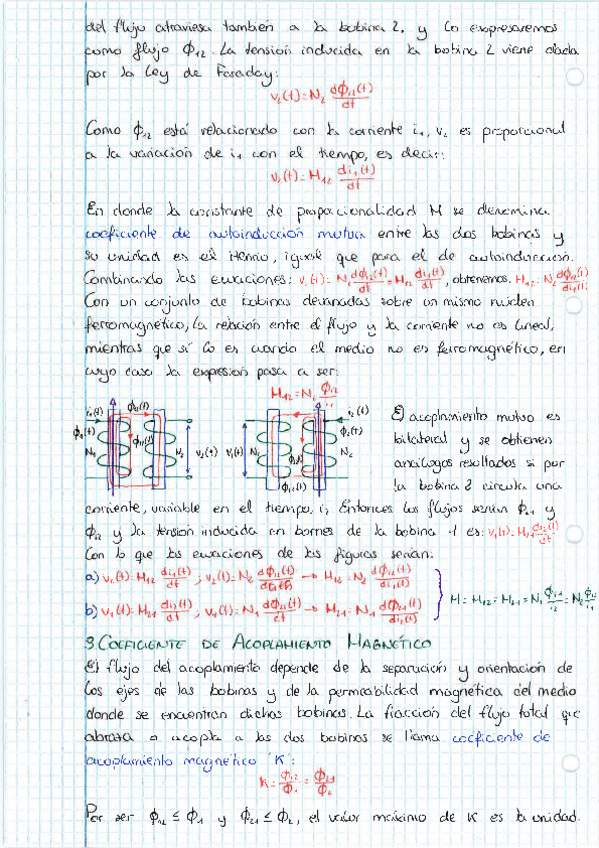 del flujo atraviesa también a la bobina 2, y lo expresaremos
como flujo ϕ₁₂. La tensión inducida en la bobina 2 viene dada
por la Ley de Faraday:
v₂(t) = N₂ dϕ₁₂(t)/dt
Como ϕ₁₂ está relacionado con la corriente i₁, v₂ es proporcional
a la variación de i₁ con el tiempo, es decir:
v₂(t) = M₁₂ di₁(t)/dt
En donde la constante de proporcionalidad M se denomina
coeficiente de autoinducción mutua entre las dos bobinas y
su unidad es el Henrio, igual que para el de autoinducción.
Combinando las ecuaciones: v₂(t) = N₂ dϕ₁₂(t)/dt = M₁₂ di₁(t)/dt, obtenemos. M₁₂ = N₂ dϕ₁₂(t)/di₁(t)
Con un conjunto de bobinas devanadas sobre un mismo núcleo
ferromagnético, la relación entre el flujo y la corriente no es lineal,
mientras que sí lo es cuando el medio no es ferromagnético, en
cuyo caso la expresión pasa a ser:
M₁₂ = N₂ ϕ₁₂/i₁
i₁(t) ϕ₁₂(t) i₂(t)
ϕ₁(t) ϕ₂(t)
N₁ N₂ v₂(t) v₁(t) N₁ N₂
ϕ₂₁(t)
El acoplamiento mutuo es
bilateral y se obtienen
análogos resultados si por
la bobina 2 circula una
corriente, variable en el tiempo, i₂. Entonces los flujos serían ϕ₂₁ y
ϕ₂₂ y la tensión inducida en bornes de la bobina 1 es: v₁(t) = M₂₁ di₂(t)/dt
Con lo que las ecuaciones de las figuras serían:
a) v₂(t) = M₁₂ di₁(t)/dt ; v₂(t) = N₂ dϕ₁₂(t)/dt → M₁₂ = N₂ dϕ₁₂(t)/di₁(t)
b) v₁(t) = M₂₁ di₂(t)/dt ; v₁(t) = N₁ dϕ₂₁(t)/dt → M₂₁ = N₁ dϕ₂₁(t)/di₂(t)
M = M₁₂ = M₂₁ = N₁ ϕ₂₁/i₂ = N₂ ϕ₁₂/i₁
3. COEFICIENTE DE ACOPLAMIENTO MAGNÉTICO
El flujo del acoplamiento depende de la separación y orientación de
los ejes de las bobinas y de la permabilidad magnética del medio
donde se encuentran dichas bobinas. La fracción del flujo total que
abraza o acopla a las dos bobinas se llama coeficiente de
acoplamiento magnético 'K':
K = ϕ₁₂/ϕ₁ = ϕ₂₁/ϕ₂
Por ser ϕ₁₂ ≤ ϕ₁ y ϕ₂₁ ≤ ϕ₂, el valor máximo de K es la unidad.